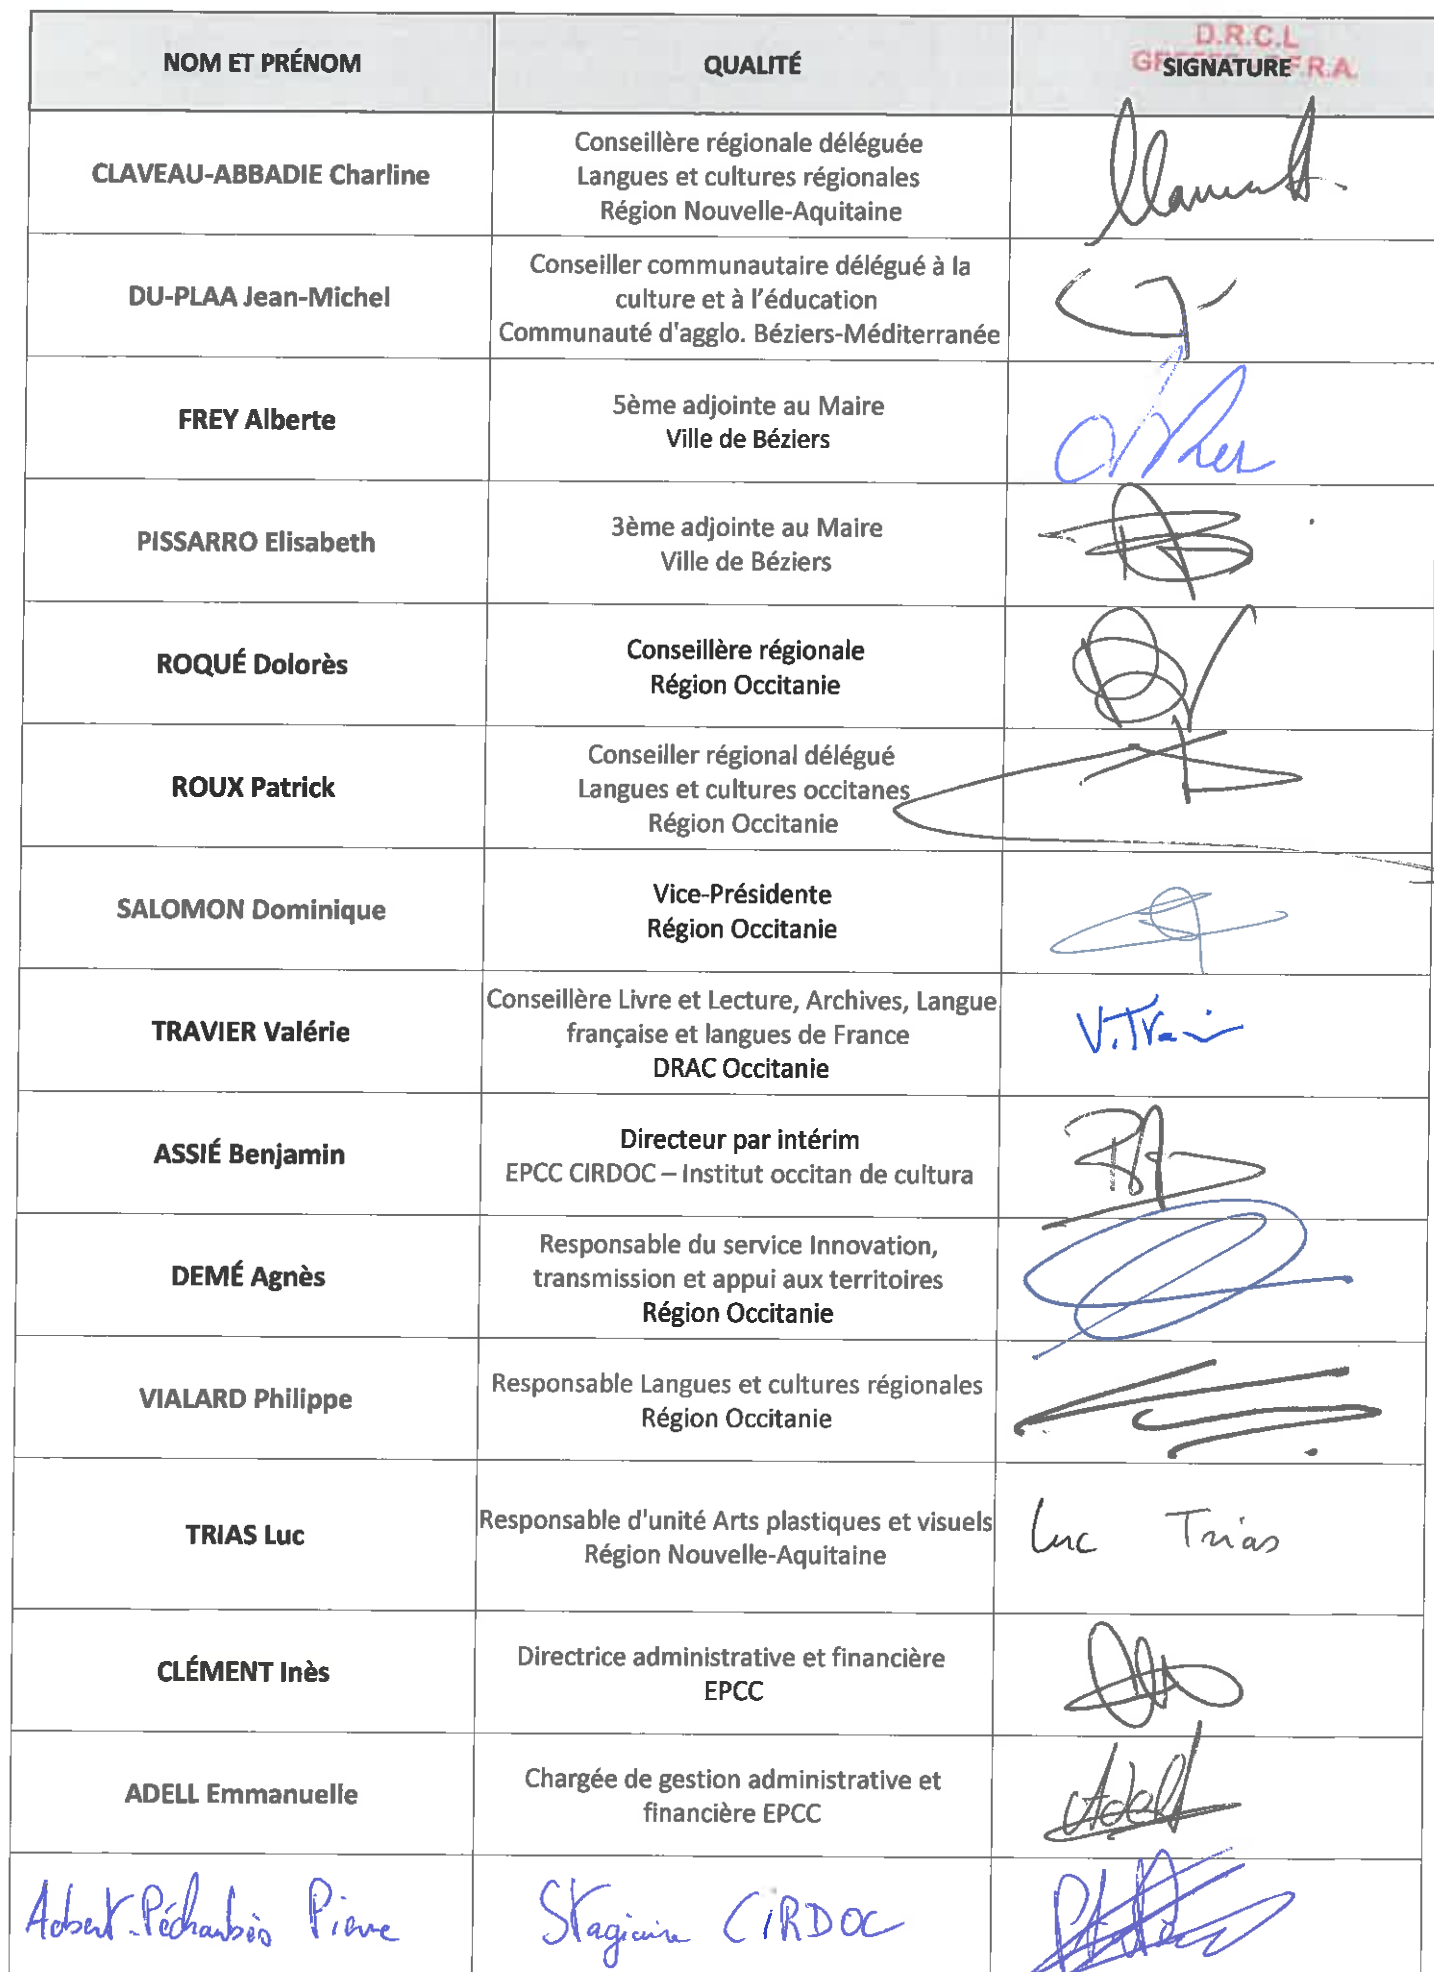 D.R.C.L
NOM ET PRÉNOM
QUALITÉ
SIGNATURE
F.R.A.
CLAVEAU-ABBADIE Charline
Conseillère régionale déléguée
Langues et cultures régionales
Région Nouvelle-Aquitaine
DU-PLAA Jean-Michel
Conseiller communautaire délégué à la
culture et à l'éducation
Communauté d'agglo. Béziers-Méditerranée
FREY Alberte
5ème adjointe au Maire
Ville de Béziers
PISSARRO Elisabeth
3ème adjointe au Maire
Ville de Béziers
ROQUÉ Dolorès
Conseillère régionale
Région Occitanie
ROUX Patrick
Conseiller régional délégué
Langues et cultures occitanes
Région Occitanie
SALOMON Dominique
Vice-Présidente
Région Occitanie
TRAVIER Valérie
Conseillère Livre et Lecture, Archives, Langue
française et langues de France
DRAC Occitanie
ASSIÉ Benjamin
Directeur par intérim
EPCC CIRDOC – Institut occitan de cultura
DEMÉ Agnès
Responsable du service Innovation,
transmission et appui aux territoires
Région Occitanie
VIALARD Philippe
Responsable Langues et cultures régionales
Région Occitanie
TRIAS Luc
Responsable d'unité Arts plastiques et visuels
Région Nouvelle-Aquitaine
Luc Trias
CLÉMENT Inès
Directrice administrative et financière
EPCC
ADELL Emmanuelle
Chargée de gestion administrative et
financière EPCC
Adell
Pierre
Stagiaire CIRDOC